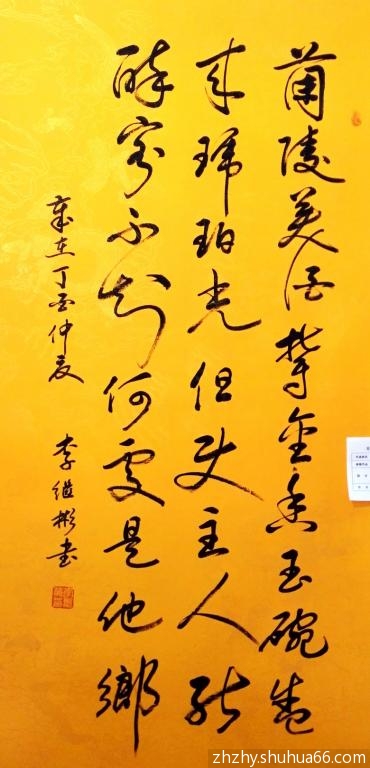 蘭陵美酒鬱金香玉碗盛
來琥珀光但使主人能
醉客不知何處是他鄉
歲在丁酉仲夏 李继彬书
zhzhy.shuhua66.com